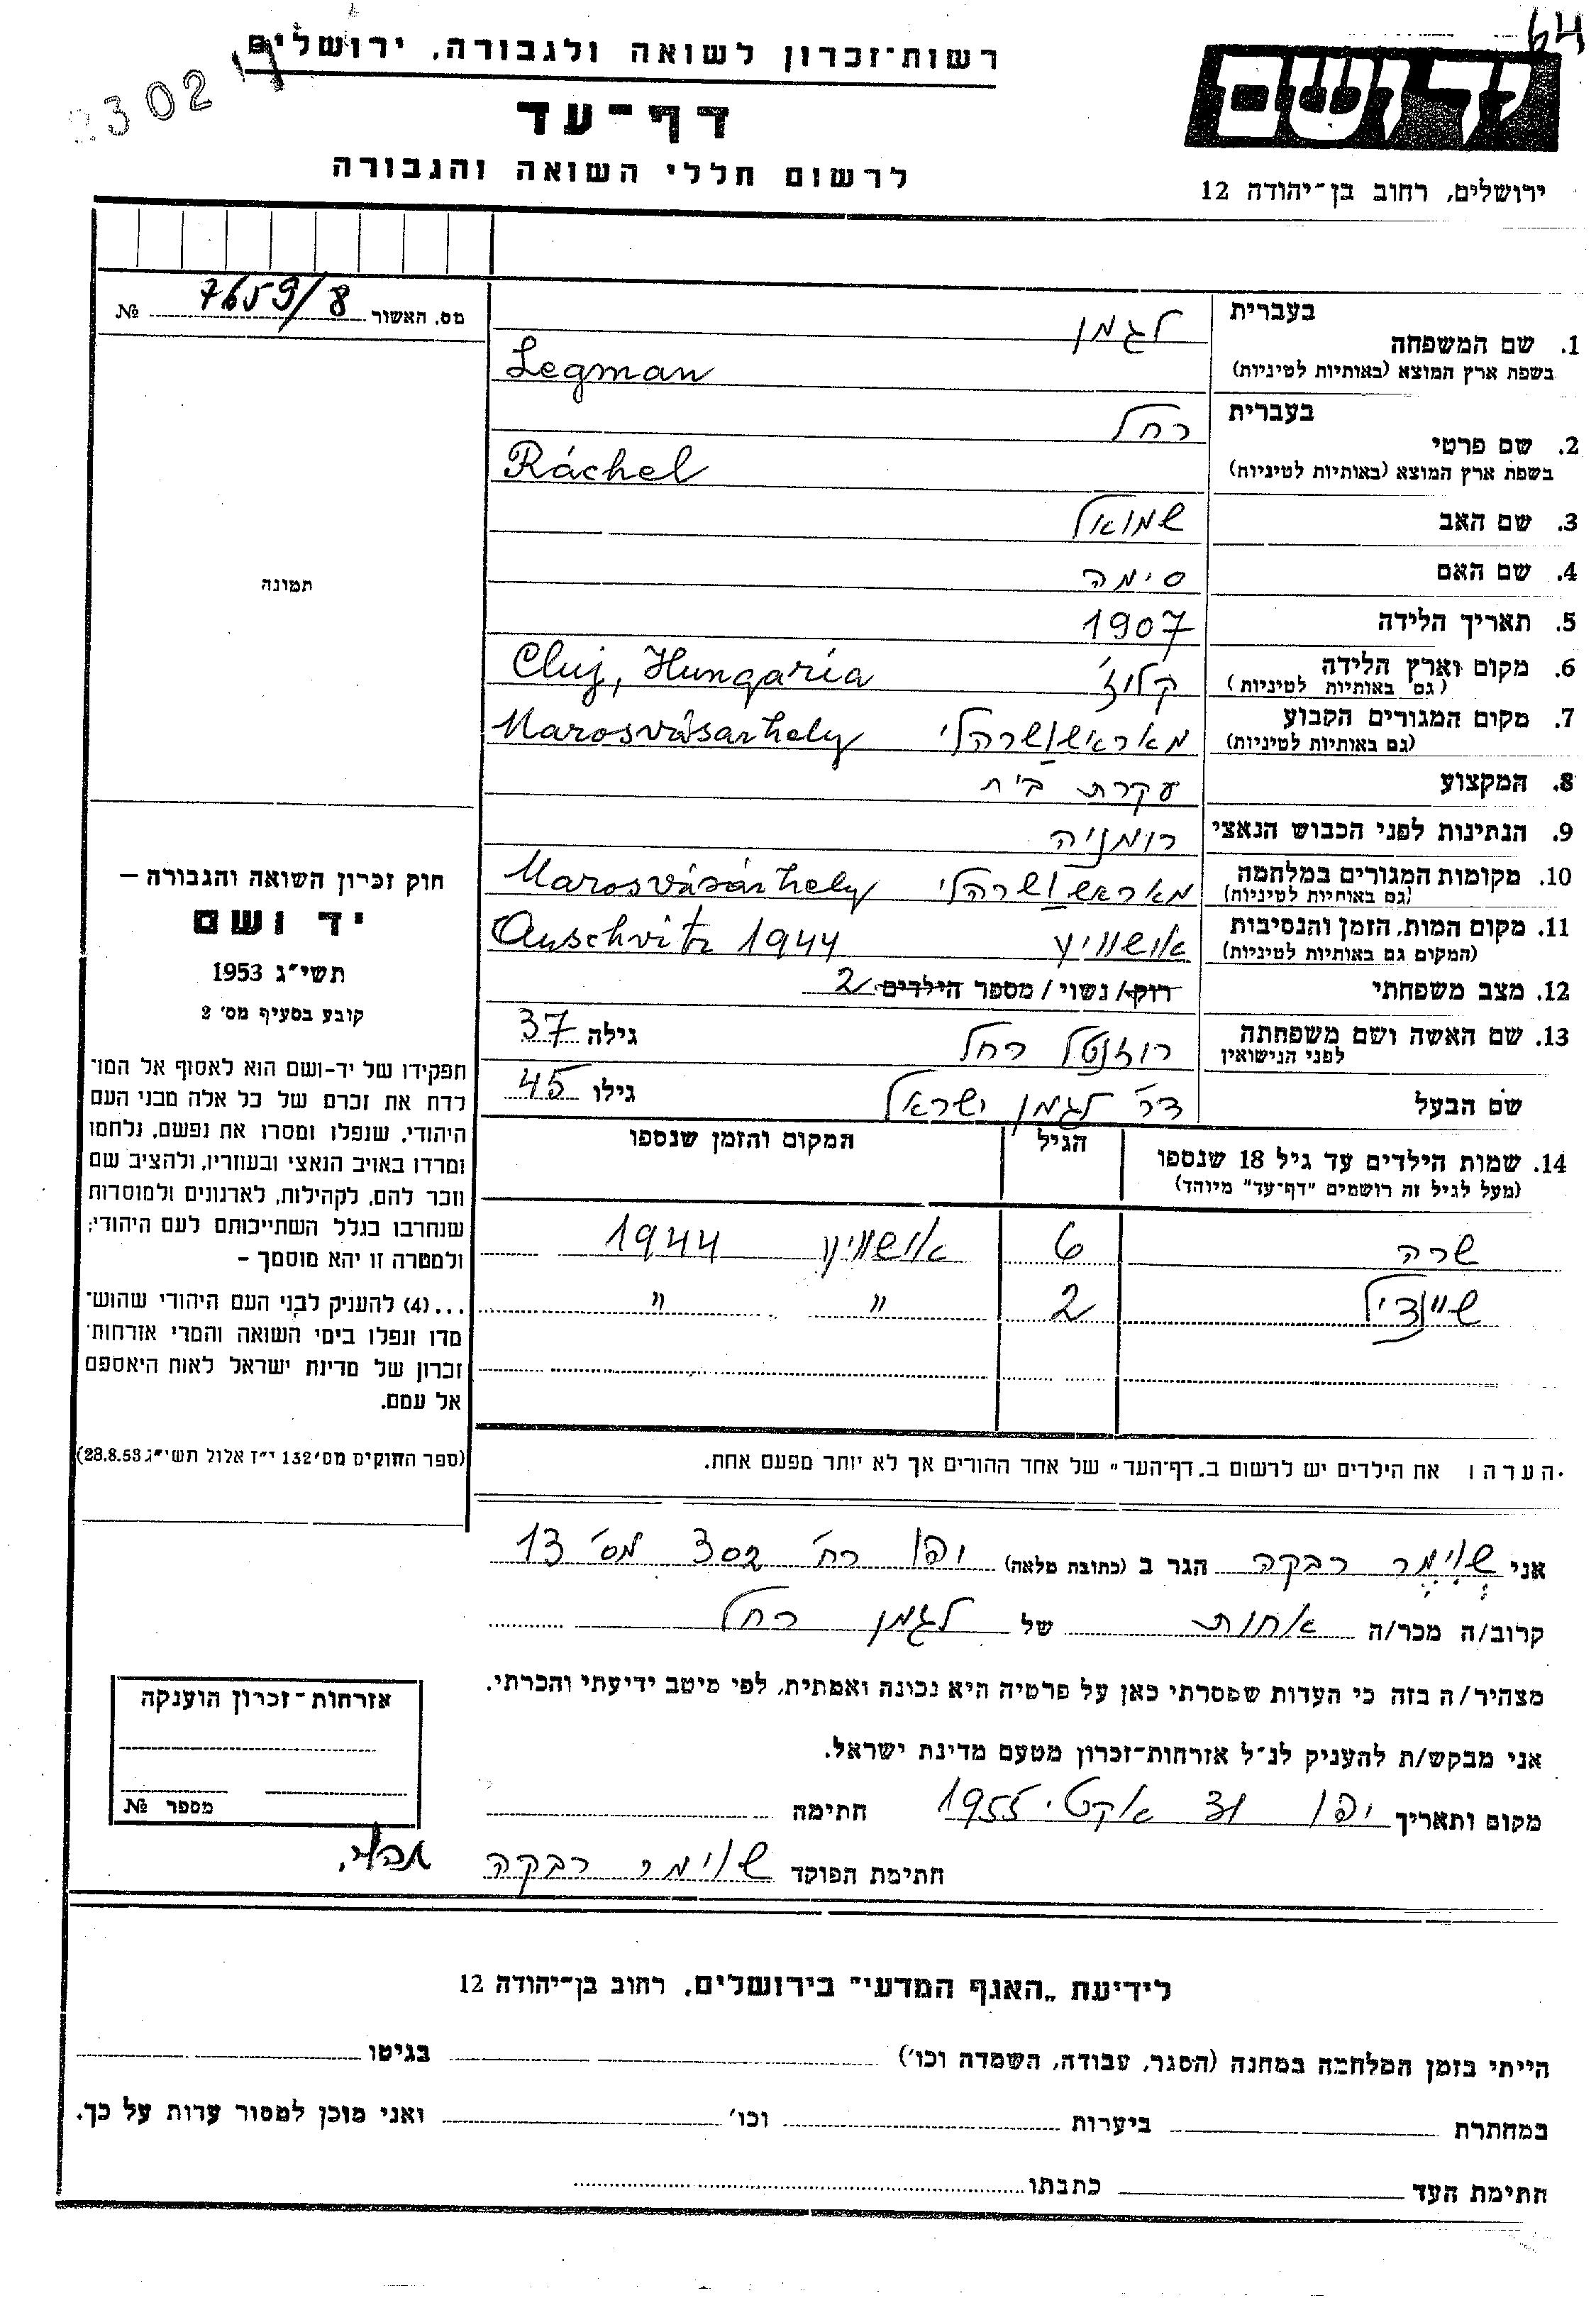 64
רשות־זכרון לשואה ולגבורה, ירושלים
302
דף־עד
לרשום חללי השואה והגבורה
יד ושם
ירושלים, רחוב בן־יהודה 12
מס. האשור 7659/8 №
תמונה
1. שם המשפחה
בעברית לגמן
בשפת ארץ המוצא (באותיות לטיניות) Legman
2. שם פרטי
בעברית רחל
בשפת ארץ המוצא (באותיות לטיניות) Ráchel
3. שם האב שמואל
4. שם האם סימה
5. תאריך הלידה 1907
6. מקום וארץ הלידה קלוז' Cluj, Hungaria
(גם באותיות לטיניות)
7. מקום המגורים הקבוע מאראשושרהלי Marosvásarhely
(גם באותיות לטיניות)
8. המקצוע עקרת בית
9. הנתינות לפני הכבוש הנאצי רומניה
10. מקומות המגורים במלחמה מאראשושרהלי Marosvásárhely
(גם באותיות לטיניות)
11. מקום המות, הזמן והנסיבות אושוויץ Auschvitz 1944
(המקום גם באותיות לטיניות)
12. מצב משפחתי רוק/ נשוי/ מספר הילדים 2
13. שם האשה ושם משפחתה רוזנטל רחל גילה 37
לפני הנישואין
שם הבעל דר' לגמן ישראל גילו 45
14. שמות הילדים עד גיל 18 שנספו הגיל המקום והזמן שנספו
(מעל לגיל זה רושמים "דף־עד" מיוחד)
שרה 6 אושוויץ 1944
שיינדיל 2 " "
חוק זכרון השואה והגבורה –
יד ושם
תשי״ג 1953
קובע בסעיף מס' 2
תפקידו של יד-ושם הוא לאסוף אל המו־
לדת את זכרם של כל אלה מבני העם
היהודי, שנפלו ומסרו את נפשם, נלחמו
ומרדו באויב הנאצי ובעוזריו, ולהציב שם
וזכר להם, לקהילות, לארגונים ולמוסדות
שנחרבו בגלל השתייכותם לעם היהודי;
ולמטרה זו יהא מוסמך –
...(4) להעניק לבני העם היהודי שהוש־
מדו ונפלו בימי השואה והמרי אזרחות־
זכרון של מדינת ישראל לאות היאספם
אל עמם.
(ספר החוקים מס' 132 י״ז אלול תשי״ג 28.8.53)
הערה: את הילדים יש לרשום ב„דף־העד" של אחד ההורים אך לא יותר מפעם אחת.
אני שוימר רבקה הגר ב (כתובת מלאה) יפו רח' 302 מס' 13
קרוב/ה מכר/ה אחות של לגמן רחל
מצהיר/ה בזה כי העדות שמסרתי כאן על פרטיה היא נכונה ואמתית, לפי מיטב ידיעתי והכרתי.
אני מבקש/ת להעניק לנ״ל אזרחות־זכרון מטעם מדינת ישראל.
מקום ותאריך יפו 31 אקט. 1955 חתימה
חתימת הפוקד שוימר רבקה
אזרחות־זכרון הוענקה
מספר №
לידיעת „האגף המדעי" בירושלים, רחוב בן־יהודה 12
הייתי בזמן המלחמה במחנה (הסגר, עבודה, השמדה וכו') בגיטו
במחתרת ביערות וכו' ואני מוכן למסור עדות על כך.
חתימת העד כתבתו